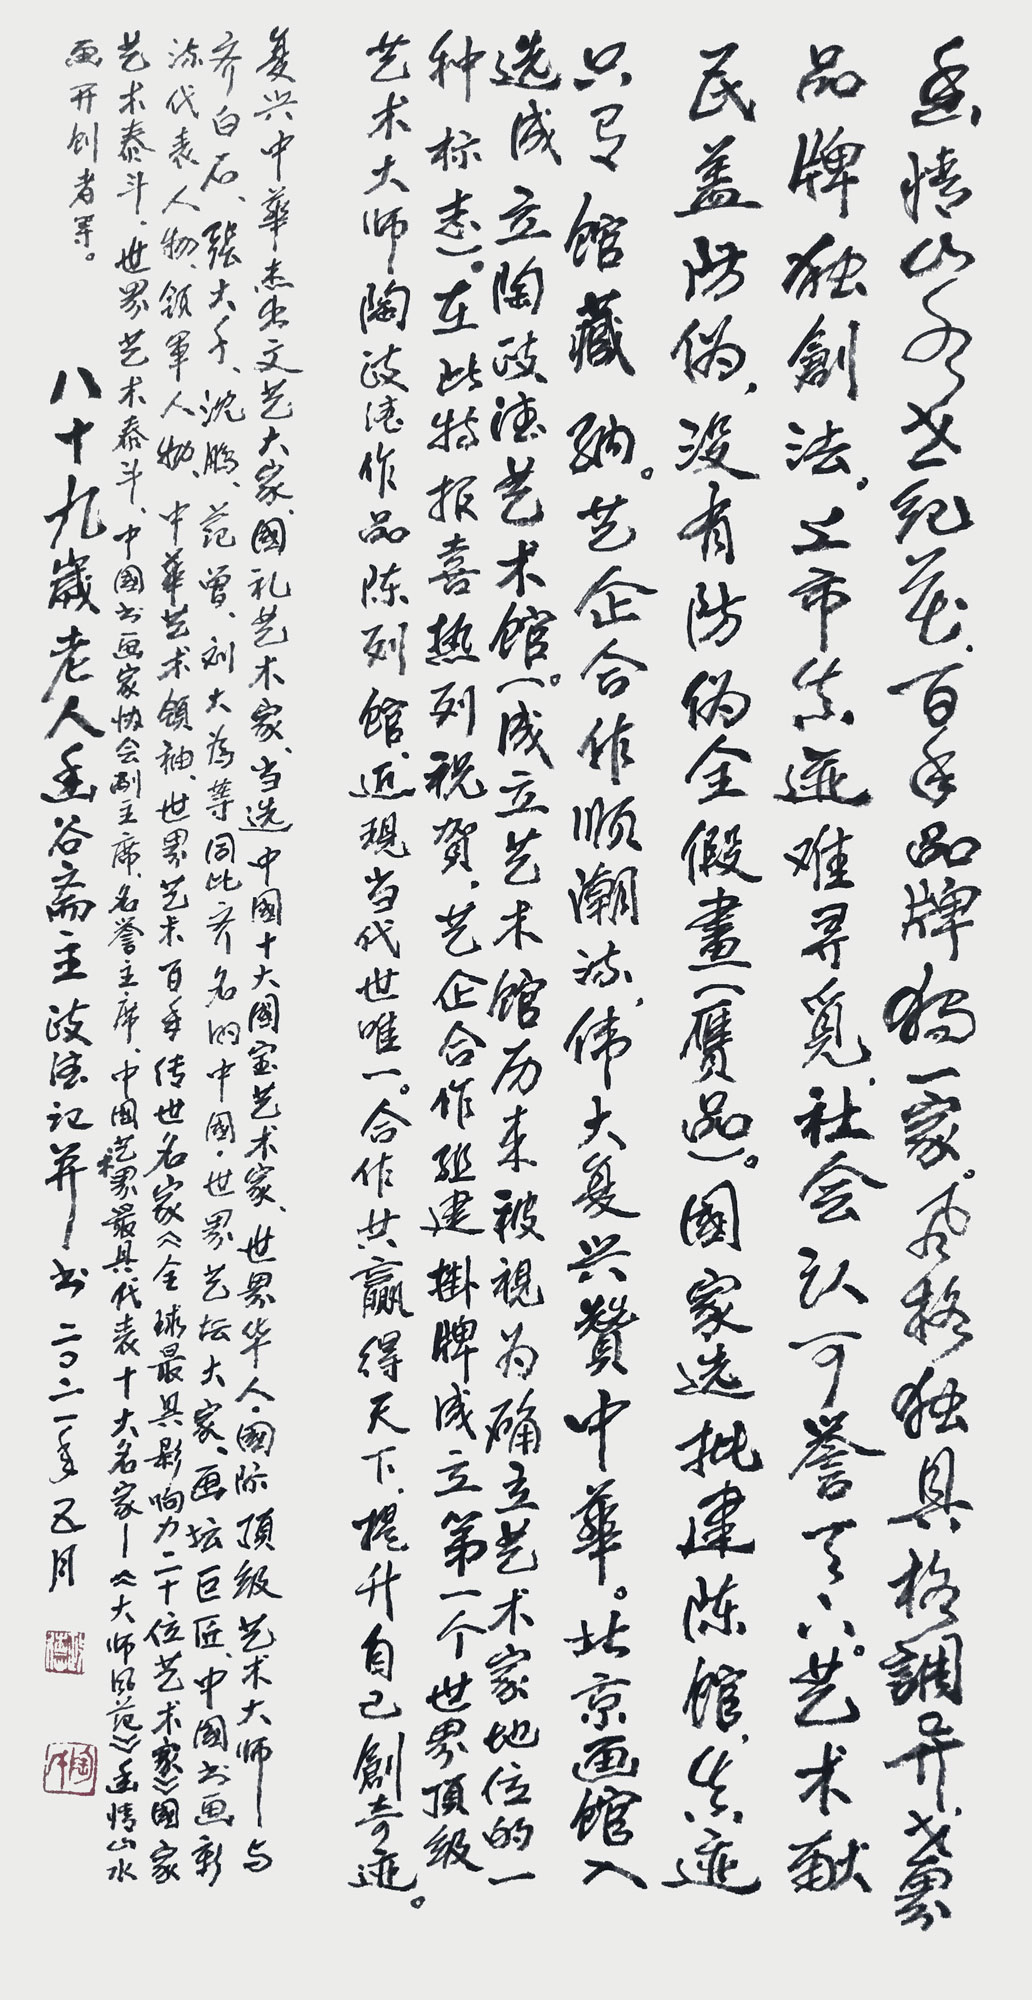 幽情山水世纪花，百年品牌独一家。风格独具格调升，世界
品牌独創法。上市真迹难寻觅，社会认可誉天下。艺术献
民盖防伪，没有防伪全假畫（赝品）。國家选批建陈馆，真迹
只有馆藏纳。艺企合作顺潮流，伟大复兴赞中華。北京画馆入
选成立陶政德艺术馆。（成立艺术馆历来被视为确立艺术家地位的一
种标志）。在此特报喜热列祝贺，艺企合作组建掛牌成立第一个世界顶级
艺术大师陶政德作品陈列馆，近现当代世唯一。合作共赢得天下，提升自己創奇迹。
复兴中華杰出文艺大家、國礼艺术家、当选中國十大國宝艺术家、世界华人·國际顶级艺术大师—与
齐白石、張大千、沈鹏、范曾、刘大为等同比齐名的中國·世界艺坛大家、画坛巨匠、中國书画新
流代表人物、领軍人物、中華艺术领袖、世界艺术百年传世名家《全球最具影响力二十位艺术家》國家
艺术泰斗、世界艺术泰斗、中國书画家协会副主席、名誉主席、中国艺术界最具代表十大名家—《大师风范》幽情山水
画开创者等。
八十九歲老人幽谷斋主政德记并书 二〇二一年五月